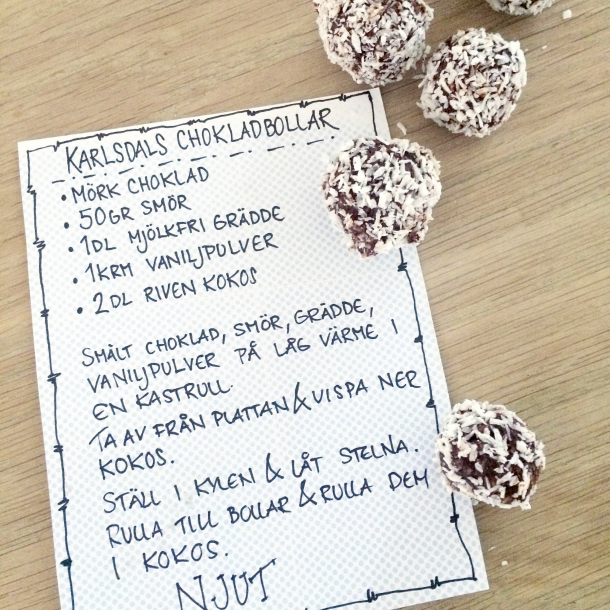 KARLSDALS CHOKLADBOLLAR
• MÖRK CHOKLAD
• 50GR SMÖR
• 1DL MJÖLKFRI GRÄDDE
• 1KRM VANILJPULVER
• 2DL RIVEN KOKOS
SMÄLT CHOKLAD, SMÖR, GRÄDDE,
VANILJPULVER PÅ LÅG VÄRME I
EN KASTRULL.
TA AV FRÅN PLATTAN & VISPA NER
KOKOS.
STÄLL I KYLEN & LÅT STELNA.
RULLA TILL BOLLAR & RULLA DEM
I KOKOS.
NJUT